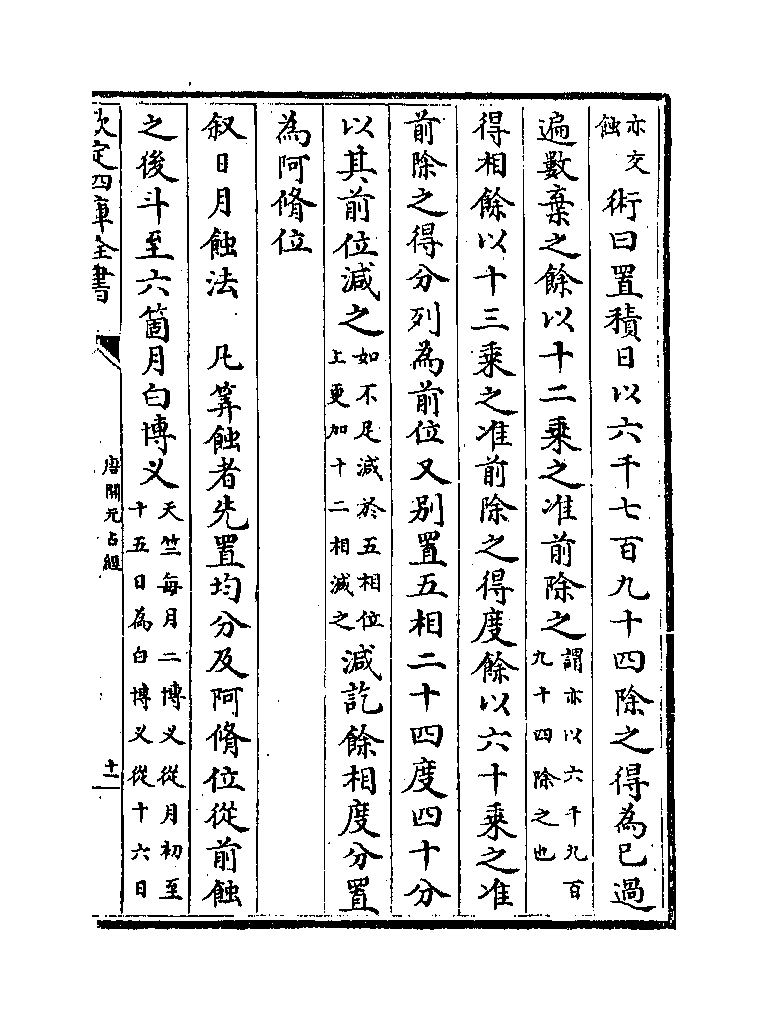 亦交
蝕
術曰置積日以六千七百九十四除之得為已過
遍數棄之餘以十二乘之准前除之
謂亦以六千九百
九十四除之也
得相餘以十三乘之准前除之得度餘以六十乘之准
前除之得分列為前位又别置五相二十四度四十分
以其前位減之
如不足減於五相位
上更加十二相減之
減訖餘相度分置
為阿脩位
叙日月蝕法　凡筭蝕者先置均分及阿脩位從前蝕
之後斗至六箇月白博义
天竺每月二博义從月初至
十五日為白博义從十六日
欽定四庫全書
唐開元占經
十一